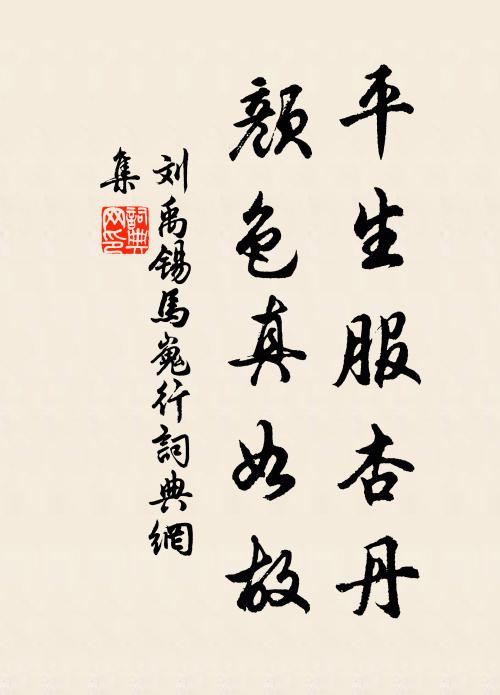 平生服杏丹
顏色真如故
刘禹锡馬嵬行詞典網
集
詞典
网印